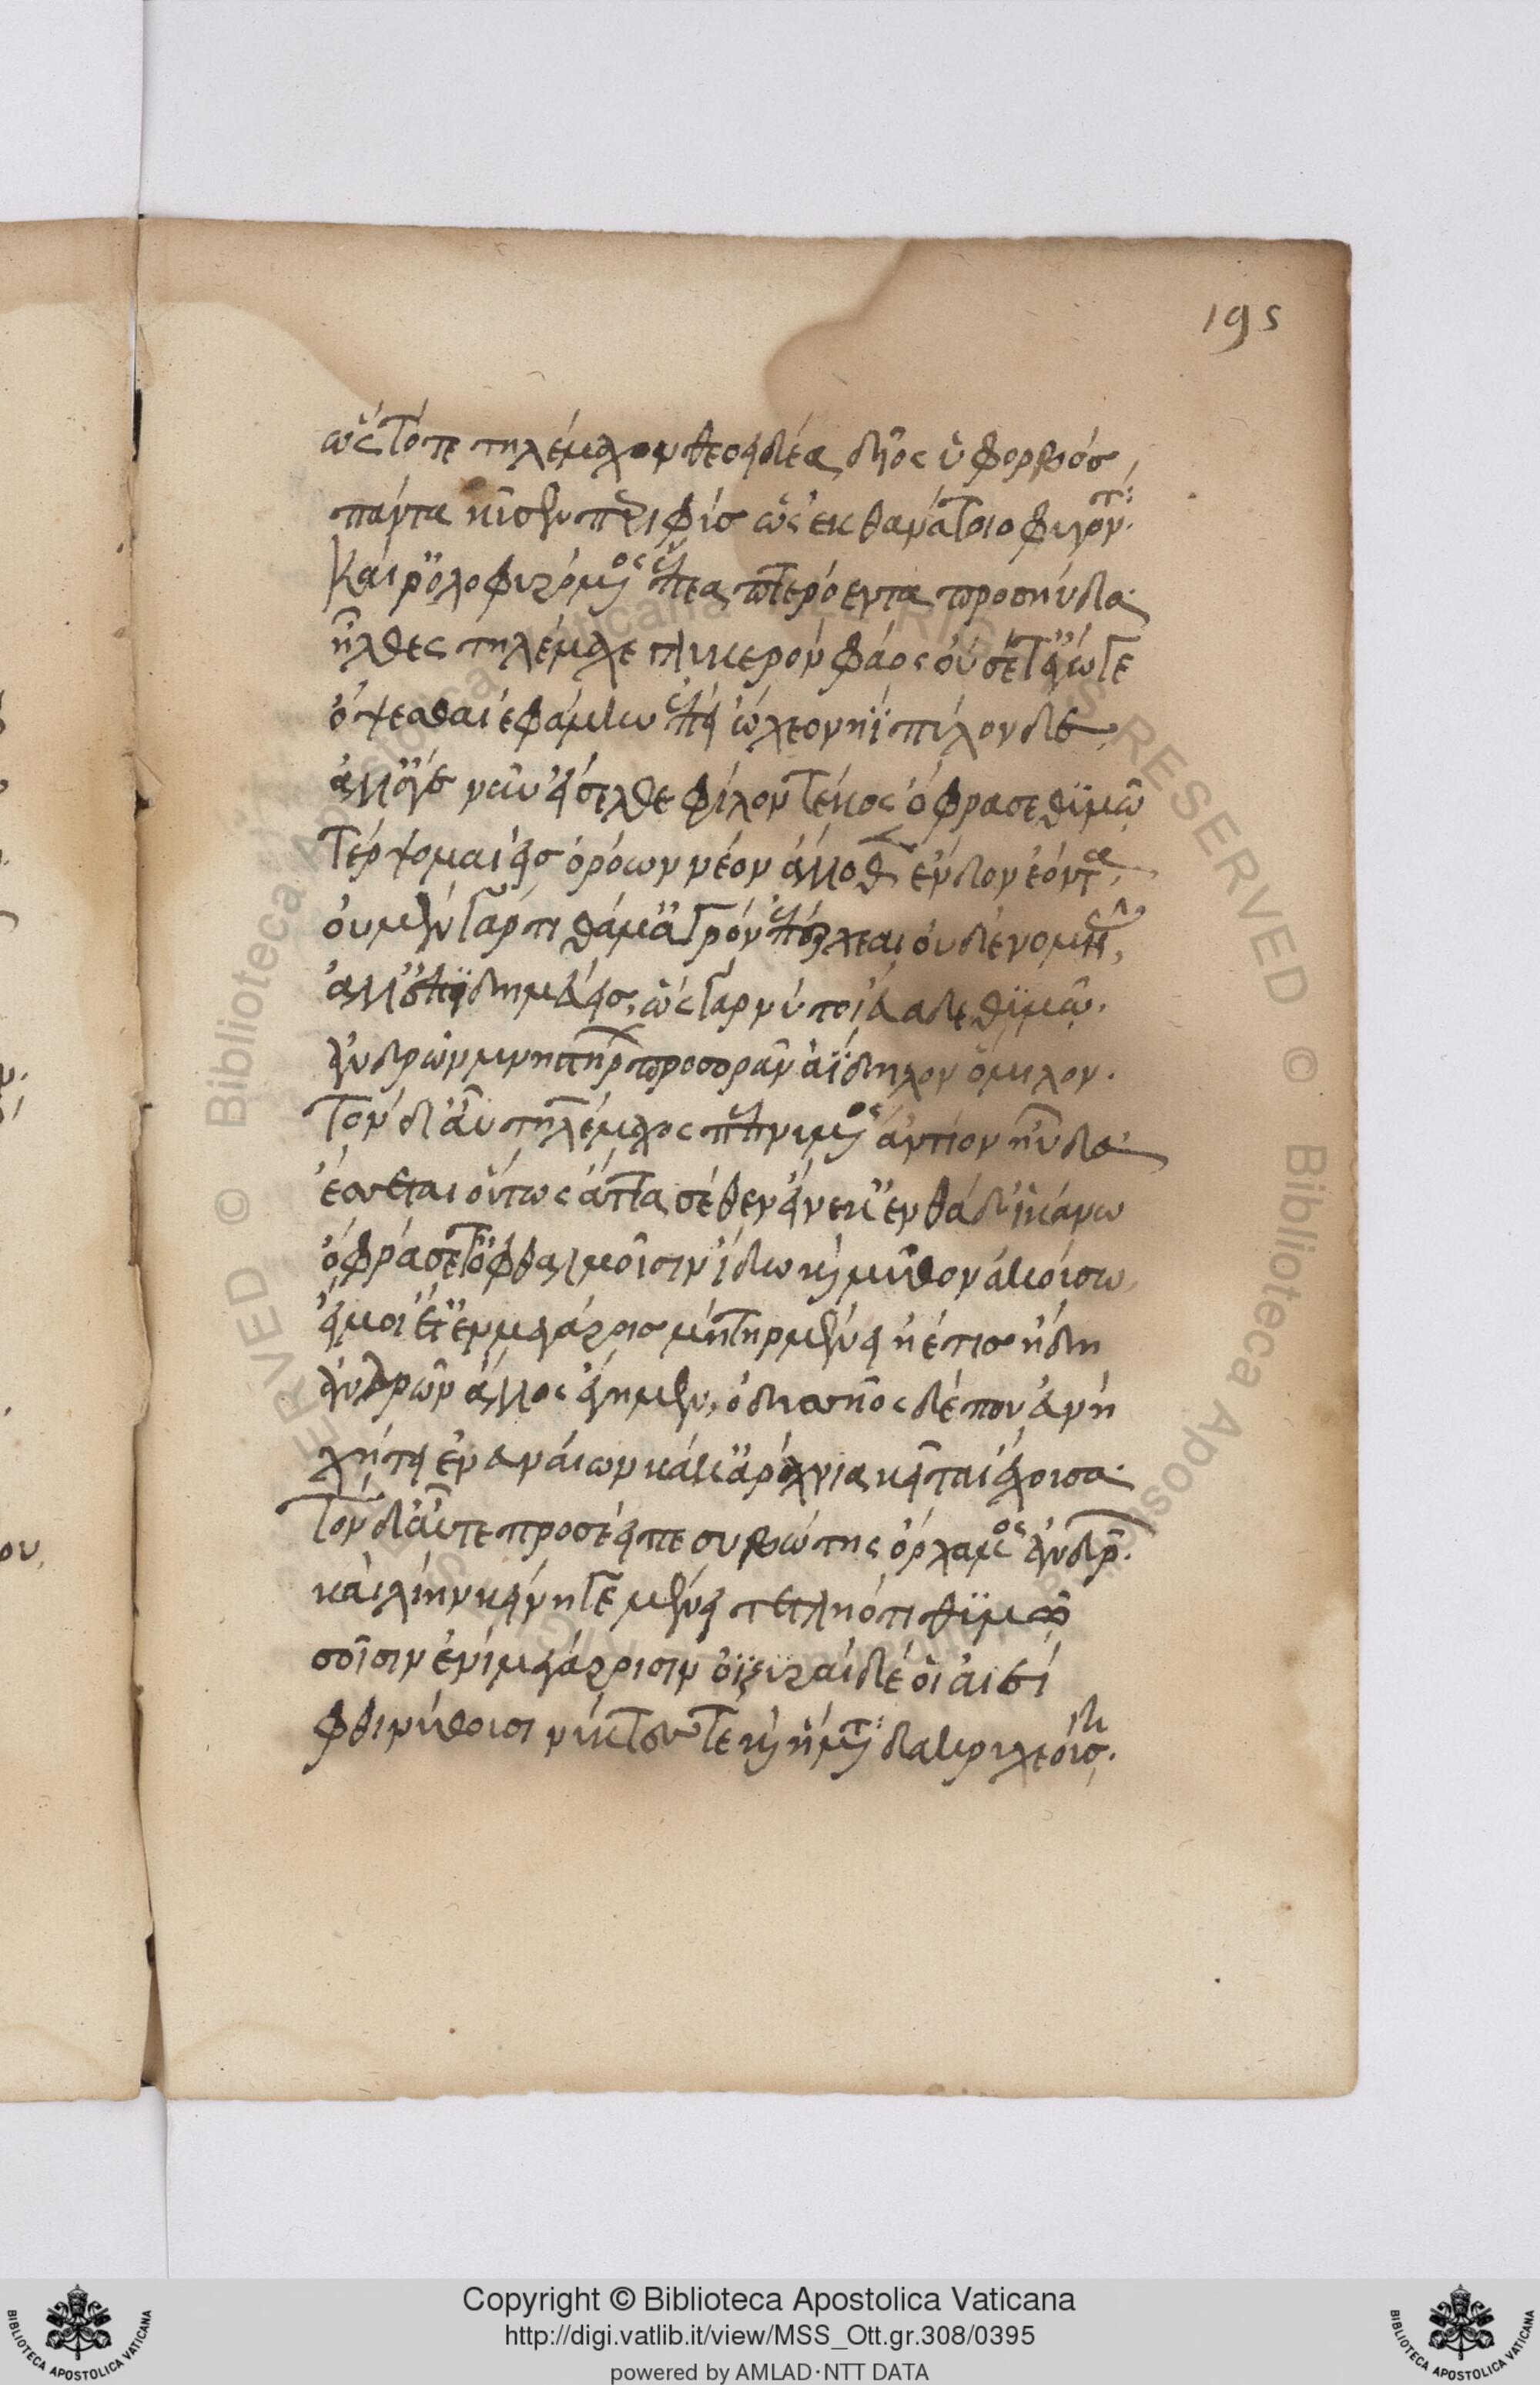 195
ὣς τότε τηλέμαχον θεοειδέα δῖος ὑφορβός,
πάντα κύσεν περιφὺς ὡς ἐκ θανάτοιο φυγόντα·
καί ῥ' ὀλοφυρόμενος ἔπεα πτερόεντα προσηύδα·
ἦλθες τηλέμαχε γλυκερὸν φάος οὔ σ' ἔτ' ἔγωγε
ὄψεσθαι ἐφάμην ἐπεὶ ὤχεο νηῒ πύλον δέ
ἀλλ' ἄγε νῦν εἴσελθε φίλον τέκος ὄφρα σε θυμῷ
τέρψομαι εἰσορόων νέον ἄλλοθεν ἔνδον ἐόντα,
οὐ μὲν γάρ τι θάμ' ἀγρὸν ἐπέρχεαι οὐδὲ νομῆας,
ἀλλ' ἐπιδημεύεις, ὣς γάρ νύ τοι εὔαδε θυμῷ.
ἀνδρῶν μνηστήρων προσορᾶν ἀΐδηλον ὅμιλον.
Τὸν δ' αὖ τηλέμαχος πεπνυμένος ἀντίον ηὔδα·
ἔσσεται οὕτως ἄττα σέθεν εἵνεκ' ἐνθάδ' ἱκάνω
ὄφρα σέ τ' ὀφθαλμοῖσιν ἴδω καὶ μῦθον ἀκούσω,
εἴ μοι ἔτ' ἐν μεγάροις μήτηρ μένει ἠέ τις ἤδη
ἀνδρῶν ἄλλος ἔγημεν, ὀδυσσῆος δέ που εὐνὴ
χήτει ἐνευναίων κάκ' ἀράχνια κεῖται ἔχουσα·
Τὸν δ' αὖτε προσέειπε συβώτης ὄρχαμος ἀνδρῶν·
καὶ λίην κείνη γε μένει τετληότι θυμῷ
σοῖσιν ἐνὶ μεγάροισιν ὀϊζυραὶ δέ οἱ αἰεὶ
φθινύθουσι νύκτες τε καὶ ἤματα δακρυχεούσῃ.
Copyright © Biblioteca Apostolica Vaticana
http://digi.vatlib.it/view/MSS_Ott.gr.308/0395
powered by AMLAD·NTT DATA